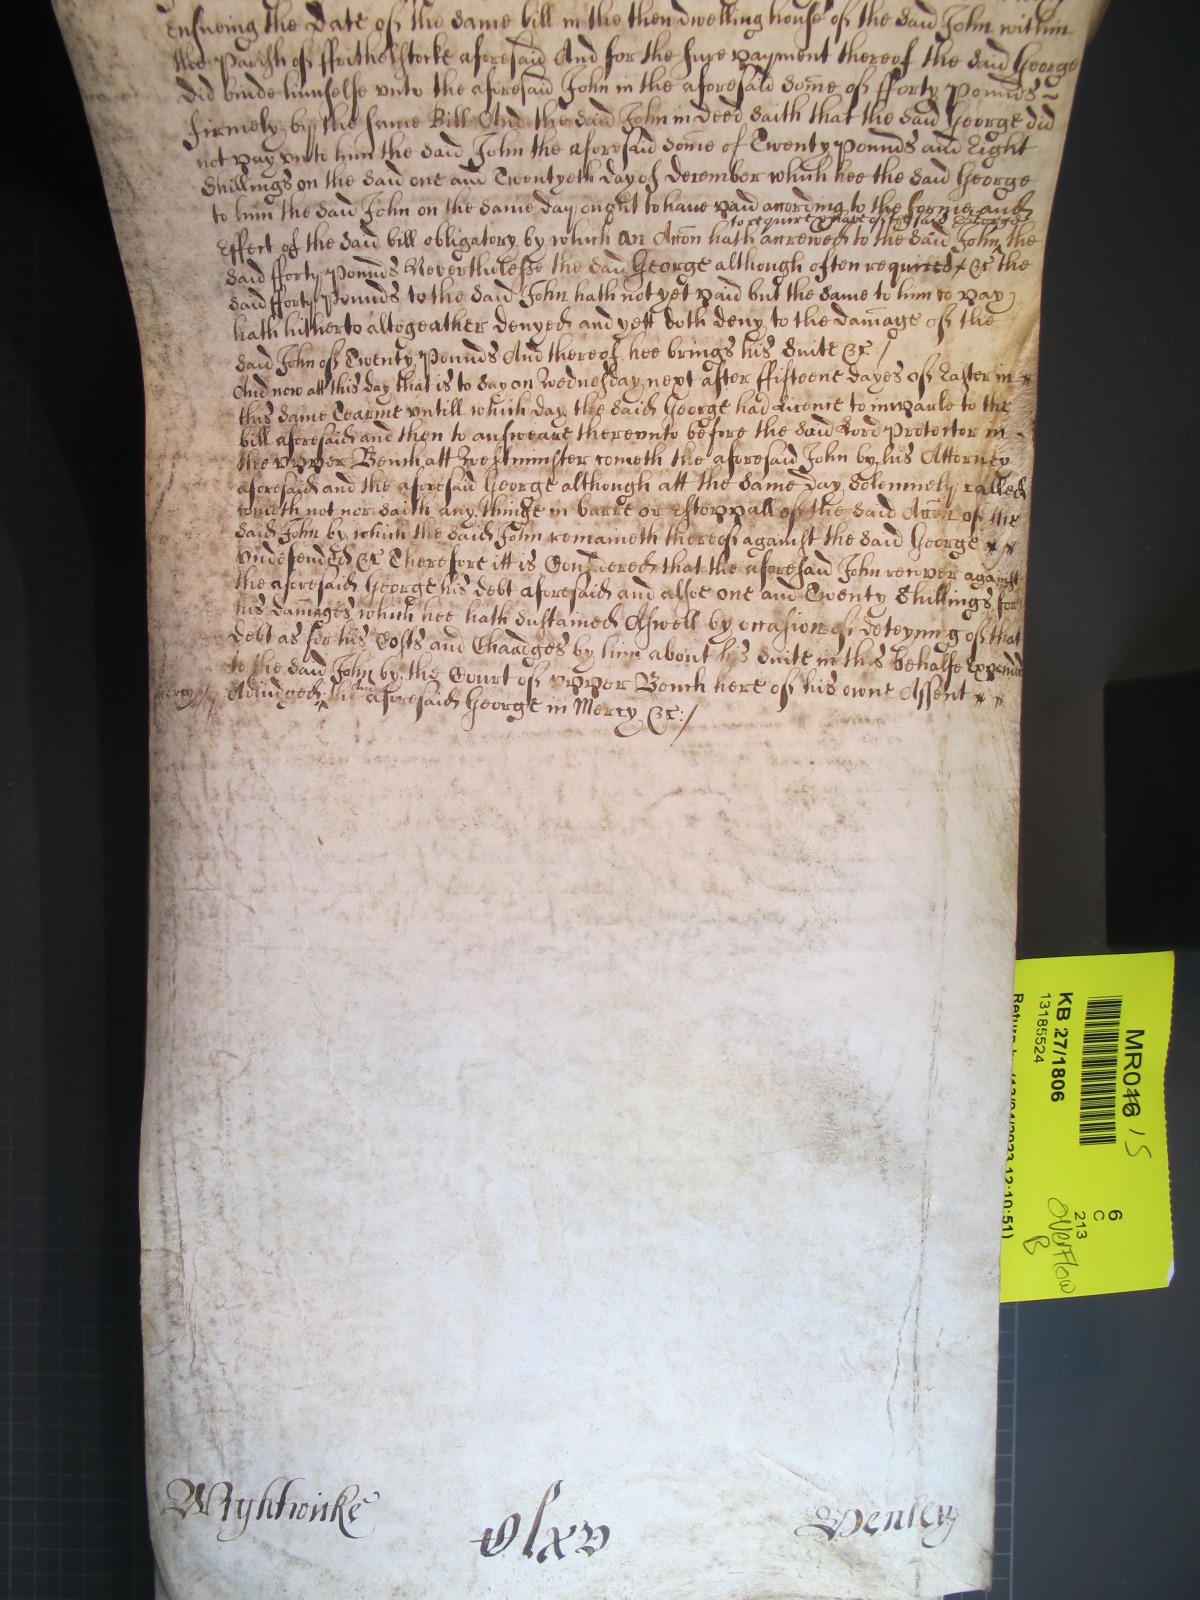 Ensueing the Date of the same bill in the then dwelling house of the said John within
the Parish of ffrithelstocke aforesaid And for the sure payment thereof the said George
did binde himselfe unto the aforesaid John in the aforesaid some of fforty Pounds
firmely by the same Bill And the said John in deed saith that the said George did
not pay unto him the said John the aforesaid some of Twenty Pounds and Eight
Shillings on the said one and Twentyeth day of December which hee the said George
to him the said John on the same day ought to have paid according to the forme and
to require & have of the said George
Effect of the said bill obligatory by which an Accon hath accrewed to the said John the
said fforty Pounds Neverthelesse the said George although often required &c the
said fforty Pounds to the said John hath not yet paid but the same to him to pay
hath hitherto altogeather denyed and yett doth deny to the damage of the
said John of Twenty Pounds And thereof hee brings his Suite &c /
And now att this day that is to say on Wednesday next after ffifteene dayes of Easter in
this same Tearme untill which day the said George had Licence to imparle to the
bill aforesaid and then to answeare thereunto before the said Lord Protector in
the upper Bench att Westminster cometh the aforesaid John by his Attorney
aforesaid and the aforesaid George although att the same day solemnely called
cometh not nor saith any thinge in barre or Estoppall of the said Accon of the
said John by which the said John remaineth thereof against the said George
undefended &c Therefore itt is Considered that the aforesaid John recover against
the aforesaid George his debt aforesaid and alsoe one and Twenty Shillings for
his damages which hee hath sustained Aswell by occasion of deteyning of that
debt as for his Costs and Chardges by him about his Suite in this behalfe Expended
to the said John by the Court of upper Bench here of his owne Assent
mercy // Adiudged the aforesaid George in Mercy &c: /
Wightwicke
olxv
Henley
MR046 15
KB 27/1806
13185524
6
C
213
Overflow
B
12:10:51)